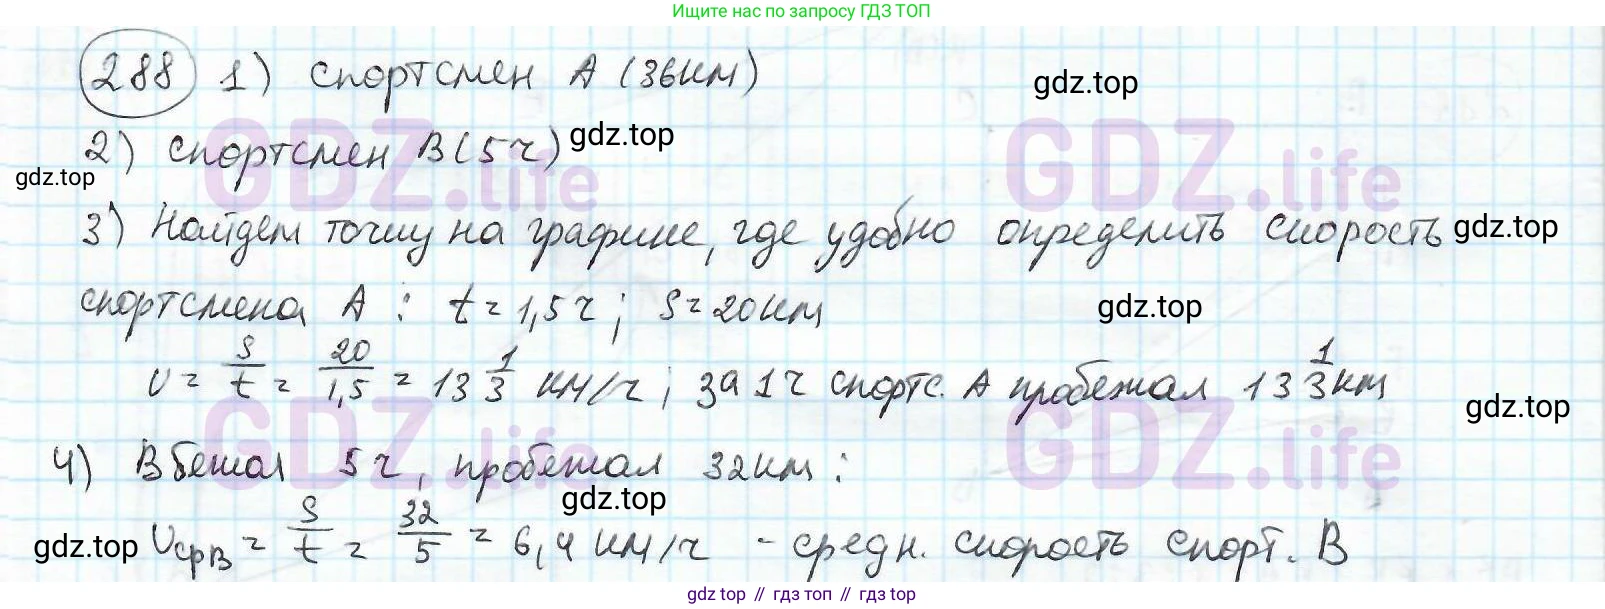 Ищите нас по запросу ГДЗ ТОП
288 1) спортсмен A (36км)
gdz.top
2) спортсмен B (5ч)
gdz.top
gdz.top
GDZ.life
GDZ.life
3) Найдем точку на графике, где удобно определить скорость
gdz.top
спортсмена A : t = 1,5ч ; S = 20км
gdz.top
v = S/t = 20/1,5 = 13 1/3 км/ч ; за 1ч спортс. A пробежал 13 1/3 км
gdz.top
GDZ.life
GDZ.life
4) B бежал 5ч, пробежал 32км :
gdz.top
gdz.top
vсрB = S/t = 32/5 = 6,4 км/ч - средн. скорость спорт. B
gdz top // гдз топ // гдз top